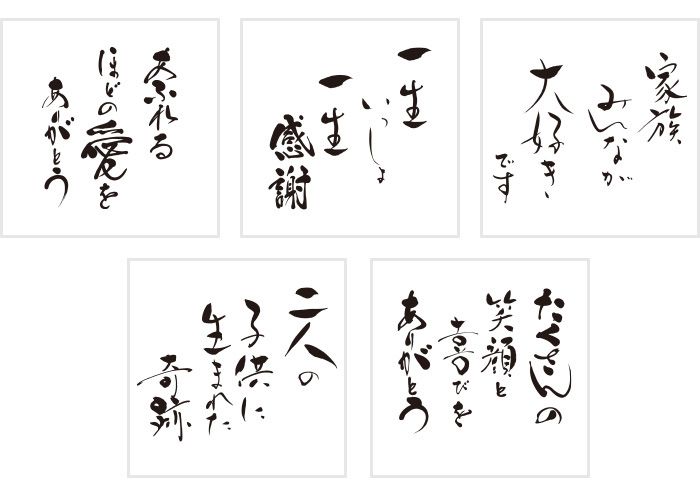 あふれる
ほどの愛を
ありがとう
一生
いっしょ
一生
感謝
家族
みんなが
大好き
です
二人の
子供に
生まれた
奇跡
たくさんの
笑顔と
喜びを
ありがとう